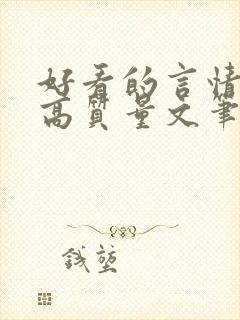 好看的言情
高质量文笔
钱堃